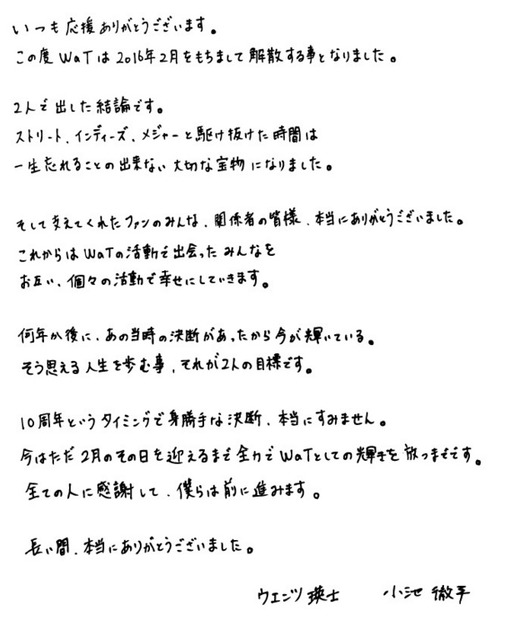 いつも応援ありがとうございます。
この度WaTは2016年2月をもちまして解散する事となりました。
2人で出した結論です。
ストリート、インディーズ、メジャーと駆け抜けた時間は
一生忘れることの出来ない大切な宝物になりました。
そして支えてくれたファンのみんな、関係者の皆様、本当にありがとうございました。
これからはWaTの活動で出会ったみんなを
お互い、個々の活動で幸せにしていきます。
何年か後に、あの当時の決断があったから今が輝いている。
そう思える人生を歩む事、それが2人の目標です。
10周年というタイミングで身勝手な決断、本当にすみません。
今はただ2月のその日を迎えるまで全力でWaTとしての輝きを放つまでです。
全ての人に感謝して、僕らは前に進みます。
長い間、本当にありがとうございました。
ウエンツ瑛士 小池徹平